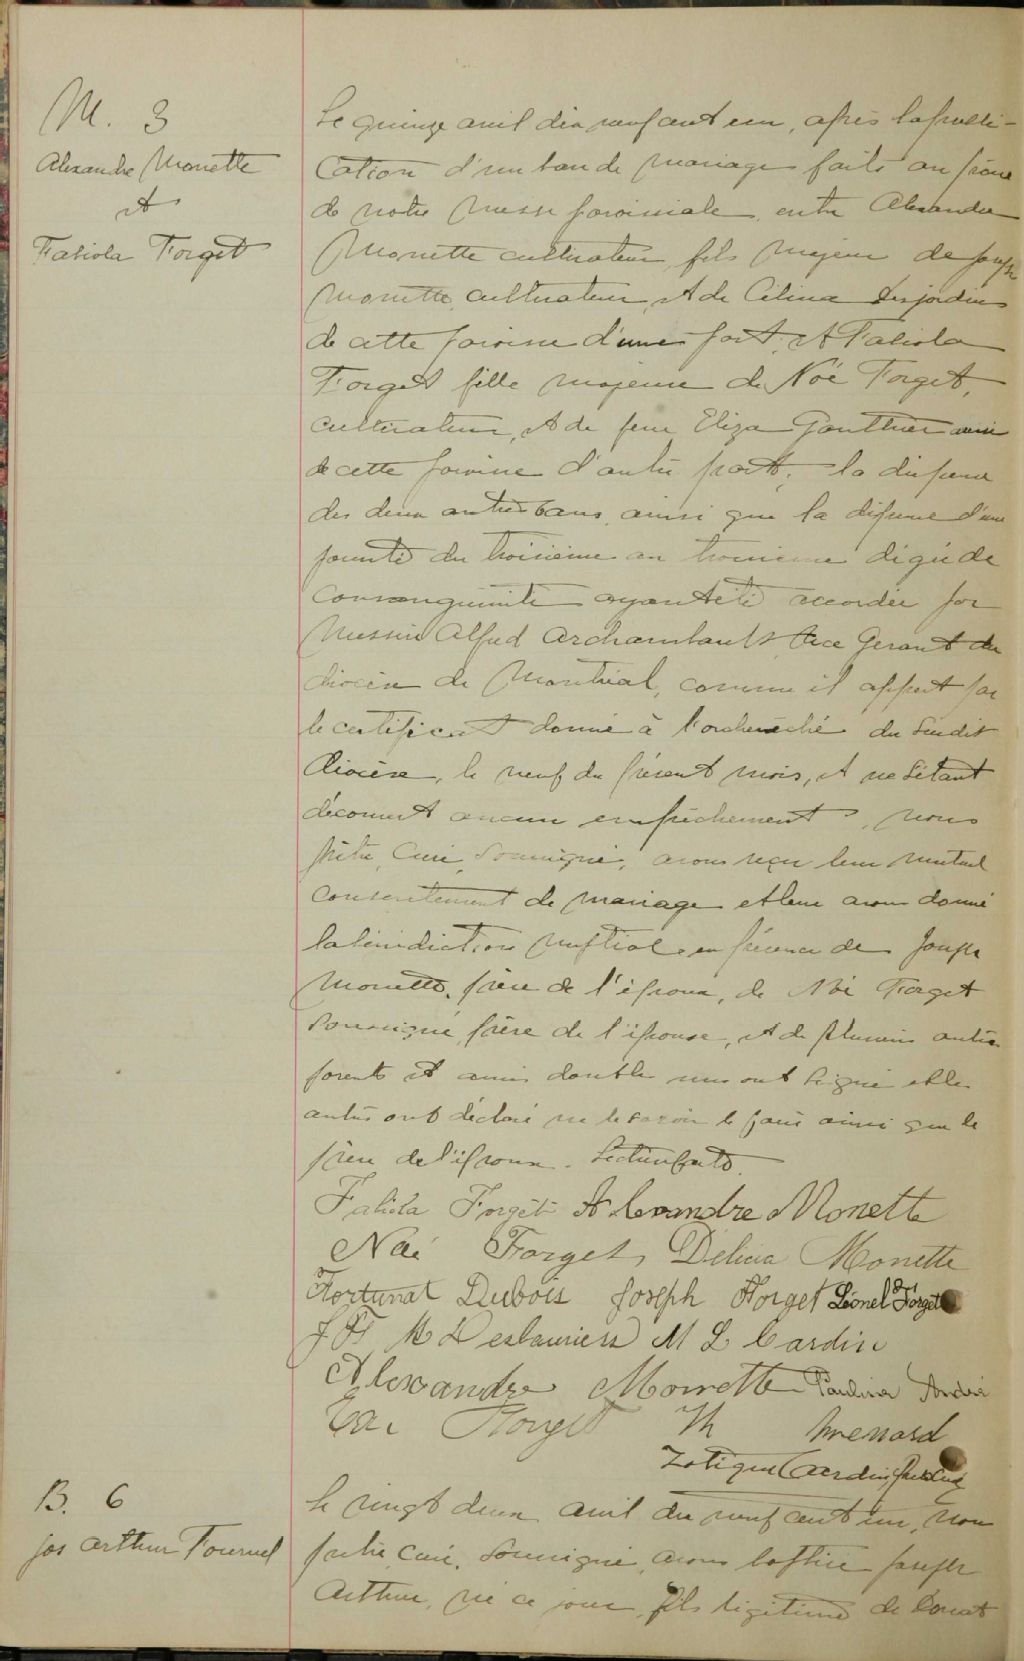 M. 3
Alexandre Monette
et
Fabiola Forget
Le quinze avril dix neuf cent un, après la publi-
cation d'un ban de mariage faite au prône
de notre messe paroissiale, entre Alexandre
Monette cultivateur, fils majeur de Joseph
Monette, cultivateur, et de Célina Desjardins
de cette paroisse d'une part, et Fabiola
Forget fille majeure de Noé Forget,
cultivateur, et de feue Eliza Gauthier aussi
de cette paroisse d'autre part; la dispense
des deux autres bans, ainsi que la dispense d'une
parenté du troisième au troisième dégré de
consanguinité ayant été accordée par
Messire Alfred Archambault Vice Gerant du
diocèse de Montréal, comme il appert par
le certificat donné à l'archevêché du susdit
diocèse, le neuf du présent mois, et ne s'étant
découvert aucun empêchement, nous
prêtre, Curé, soussigné, avons reçu leur mutuel
consentement de mariage et leur avons donné
la bénédiction nuptiale en présence de Joseph
Monette, frère de l'époux, de Noé Forget
soussigné, frère de l'épouse, et de plusieurs autres
parents et amis dont les uns ont signé et les
autres ont déclaré ne le savoir le faire ainsi que le
frère de l'époux. Lecture faite.
Fabiola Forget Alexandre Monette
Noé Forget, Délicia Monette
Fortunat Dubois Joseph Forget Léonel Forget
J H Deslauriers M L Cardin
Alexandre Monette Pauline André
Forget Th Menard
Zotique Cardin, Ptre Curé
B. 6
Jos Arthur Fournel
Le vingt deux avril dix neuf cent un, nous
prêtre, Curé, soussigné, avons baptisé Joseph
Arthur, né ce jour, fils légitime de Donat